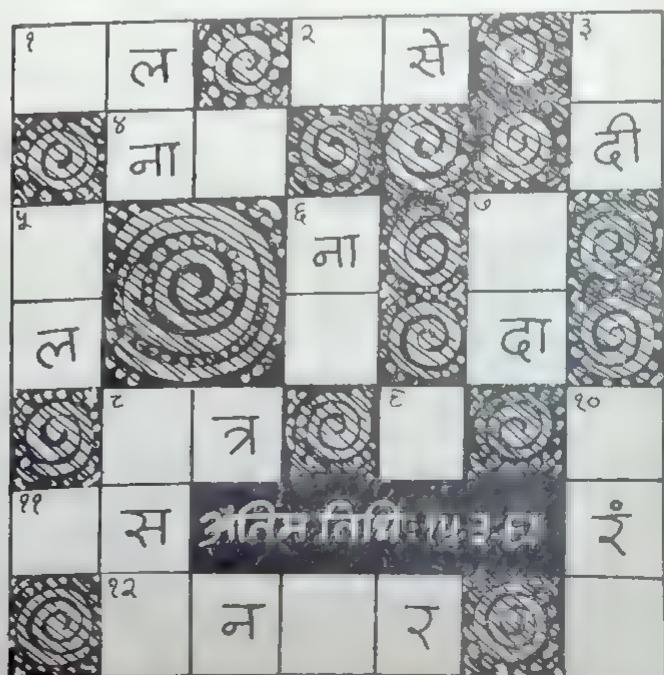 १ ल २ से ३
४ ना दी
५ ६ ना ७
ल दा
८ त्र ९ १०
११ स अंतिम तिथि रं
१२ न र